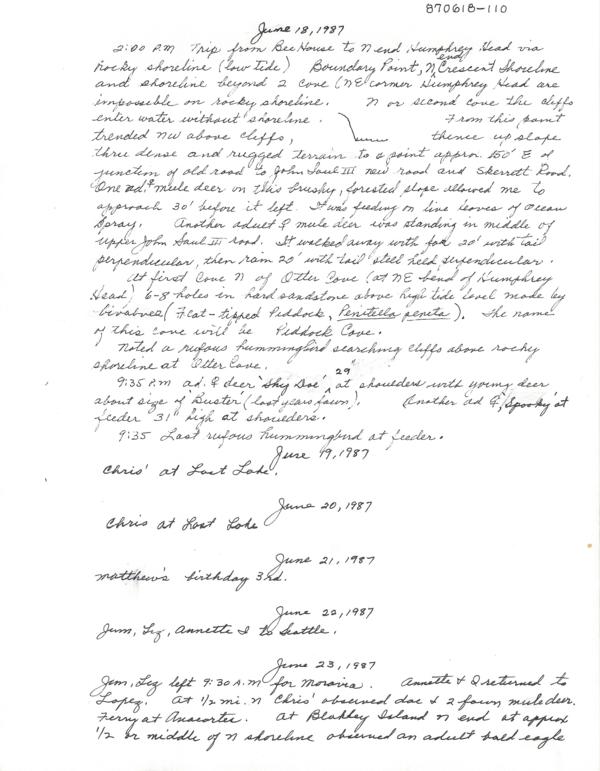 870618-110
June 18, 1987
2:00 P.M Trip from Bee House to N end Humphrey Head via
rocky shoreline (low tide) Boundary Point, N end Crescent Shoreline
and shoreline beyond 2 cove (NE corner Humphrey Head are
impossible on rocky shoreline. N or second cove the cliffs
enter water without shoreline. From this point
trended NW above cliffs, thence up slope
thru dense and rugged terrain to a point approx. 150' E of
junction of old road to John Saul III new road and Skerrett Road.
One ad. ♀ mule deer on this brushy, forested slope allowed me to
approach 30' before it left. It was feeding on live leaves of Ocean
Spray. Another adult ♀ mule deer was standing in middle of
upper John Saul III road. It walked away with for 20' with tail
perpendicular, then ran 20' with tail still held perpendicular.
At first Cove N of Otter Cove (at NE bend of Humphrey
Head) 6-8 holes in hard sandstone above high tide level made by
bivalves (Flat-tipped Piddock, Penitella penita). The name
of this cove will be Piddock Cove.
Noted a rufous hummingbird searching cliffs above rocky
shoreline at Otter Cove.
9:35 P.M ad. ♀ deer 'Shy Doe' 29" at shoulders with young deer
about size of Buster (last years fawn). Another ad ♀, 'Spooky' at
feeder 31" high at shoulders.
9:35 Last rufous hummingbird at feeder.
June 19, 1987
Chris' at Lost Lake.
June 20, 1987
Chris at Lost Lake
June 21, 1987
Matthew's birthday 3rd.
June 22, 1987
Jim, Liz, Annette I to Seattle.
June 23, 1987
Jim, Liz left 9:30 A.M for Moravia. Annette & I returned to
Lopez. At 1/2 mi. N Chris' observed doe & 2 fawn mule deer.
Ferry at Anacortes. At Blakley Island N end at approx
1/2 or middle of N shoreline observed an adult bald eagle